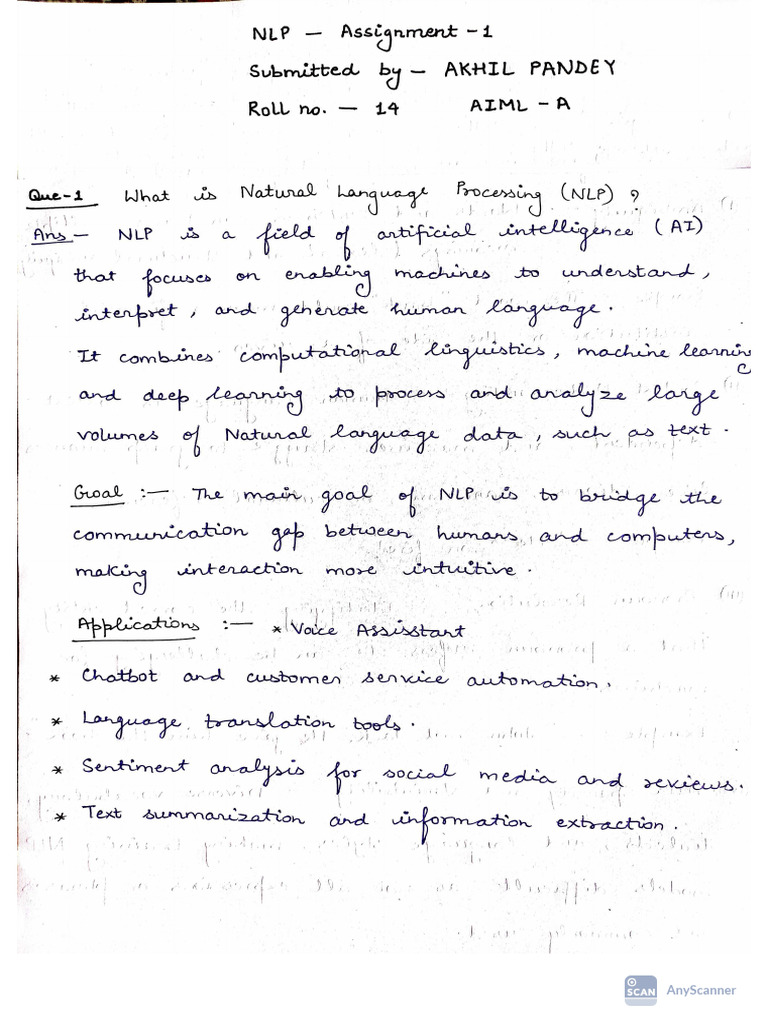 NLP — Assignment - 1
Submitted by — AKHIL PANDEY
Roll no. — 14 AIML - A
Que-1 What is Natural Language Processing (NLP) ?
Ans — NLP is a field of artificial intelligence (AI)
that focuses on enabling machines to understand,
interpret, and generate human language.
It combines computational linguistics, machine learning
and deep learning to process and analyze large
volumes of Natural language data, such as text.
Goal :— The main goal of NLP is to bridge the
communication gap between humans and computers,
making interaction more intuitive.
Applications :— * Voice Assisstant
* Chatbot and customer service automation.
* Language translation tools.
* Sentiment analysis for social media and reviews.
* Text summarization and information extraction.
SCAN AnyScanner